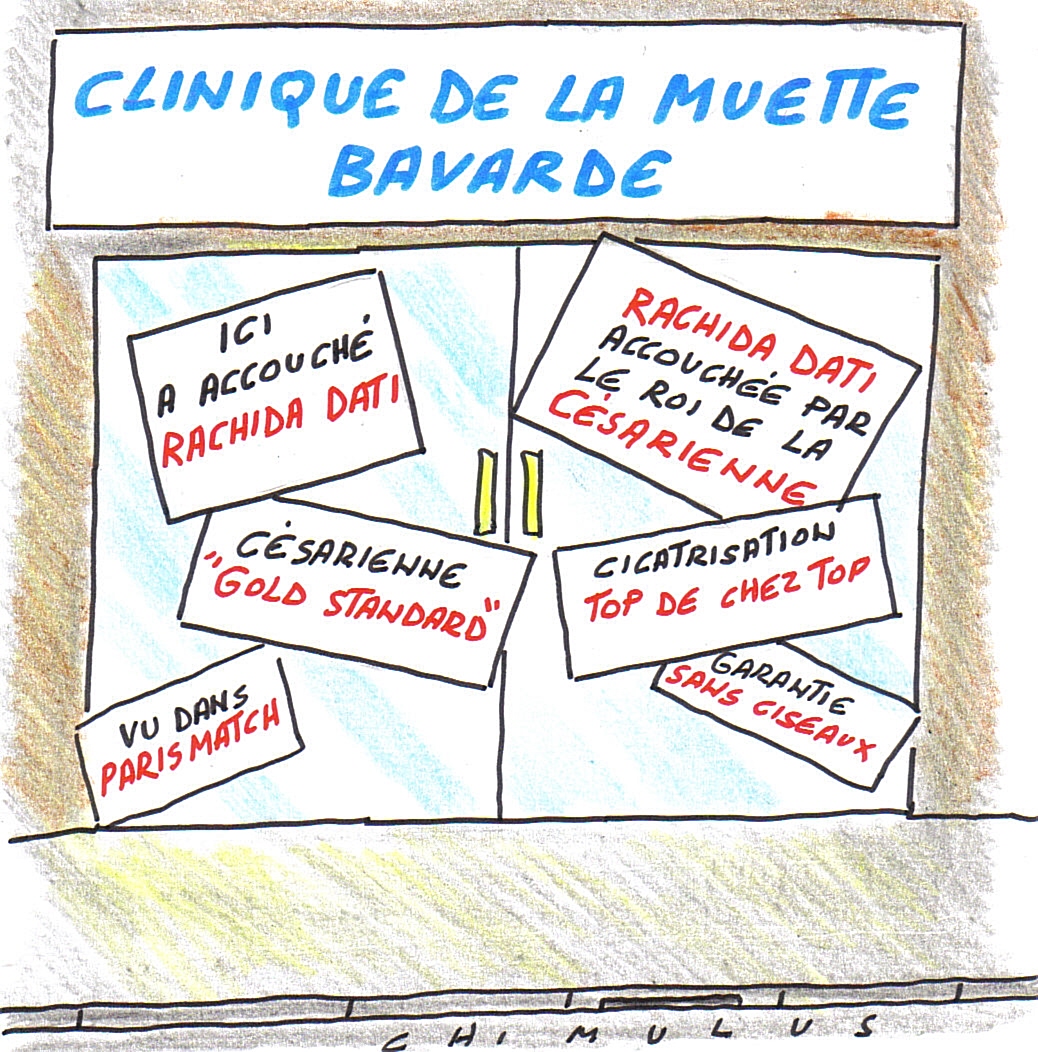 CLINIQUE DE LA MUETTE
BAVARDE
ICI
A ACCOUCHÉ
RACHIDA DATI
RACHIDA DATI
ACCOUCHÉE PAR
LE ROI DE LA
CÉSARIENNE
CÉSARIENNE
"GOLD STANDARD"
CICATRISATION
TOP DE CHEZ TOP
VU DANS
PARIS MATCH
GARANTIE
SANS CISEAUX
CHIMULUS